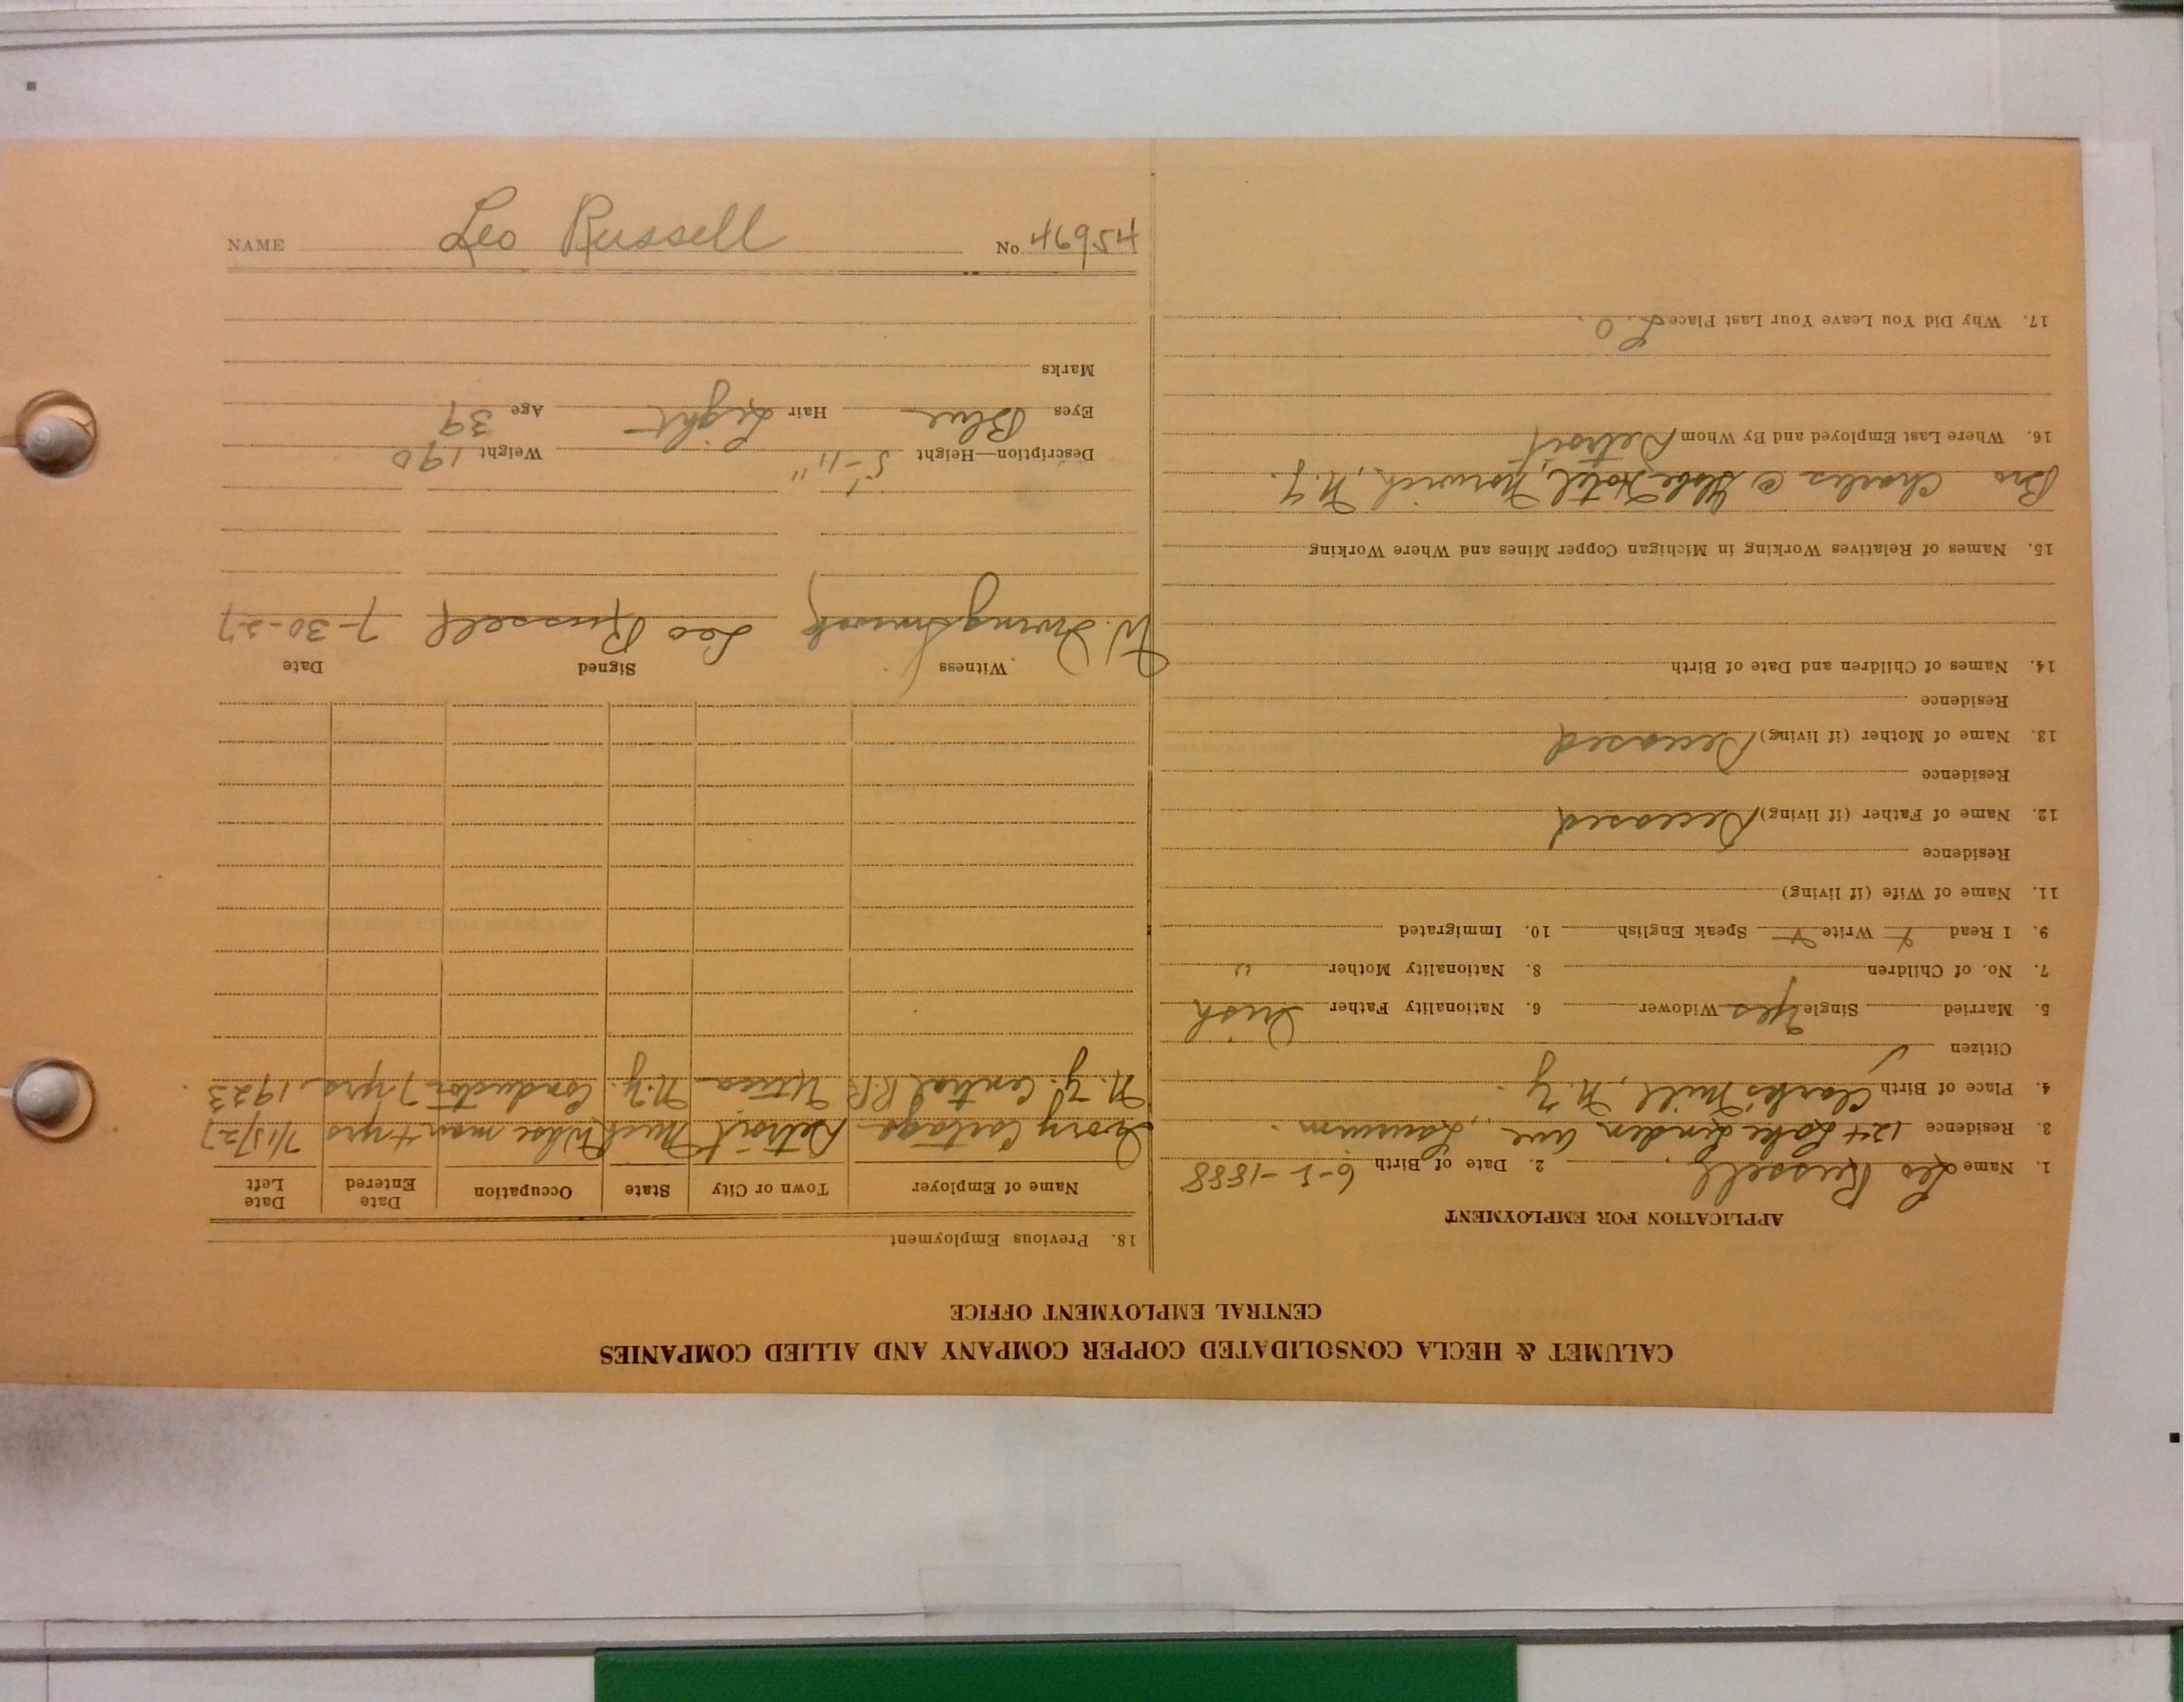 NAME Leo Russell No. 46954
CALUMET & HECLA CONSOLIDATED COPPER COMPANY AND ALLIED COMPANIES
CENTRAL EMPLOYMENT OFFICE
APPLICATION FOR EMPLOYMENT
1. Name Leo Russell 2. Date of Birth 6-5-1888
3. Residence 124 Lake Linden Ave, Laurium.
4. Place of Birth Clarks Mill, N.Y.
Citizen ✓
5. Married Single Yes Widower 6. Nationality Father Irish
7. No. of Children 8. Nationality Mother "
9. I Read Write Speak English 10. Immigrated
11. Name of Wife (if living)
Residence
12. Name of Father (if living) Deceased
Residence
13. Name of Mother (if living) Deceased
Residence
14. Names of Children and Date of Birth
15. Names of Relatives Working in Michigan Copper Mines and Where Working
Bro Charles @ Globe Hotel, Norwich, N.Y.
16. Where Last Employed and By Whom Detroit
17. Why Did You Leave Your Last Place L.O.
18. Previous Employment
Name of Employer Town or City State Occupation Date Entered Date Left
Ivory Cartage Detroit Mich Whse man 4 yrs 7/15/27
N.Y. Central R.R. Utica N.Y. Conductor 7 yrs. 1923
Witness Signed Date
W. Leo Russell 7-30-27
Description—Height 5-11" Weight 190
Eyes Blue Hair Light Age 39
Marks